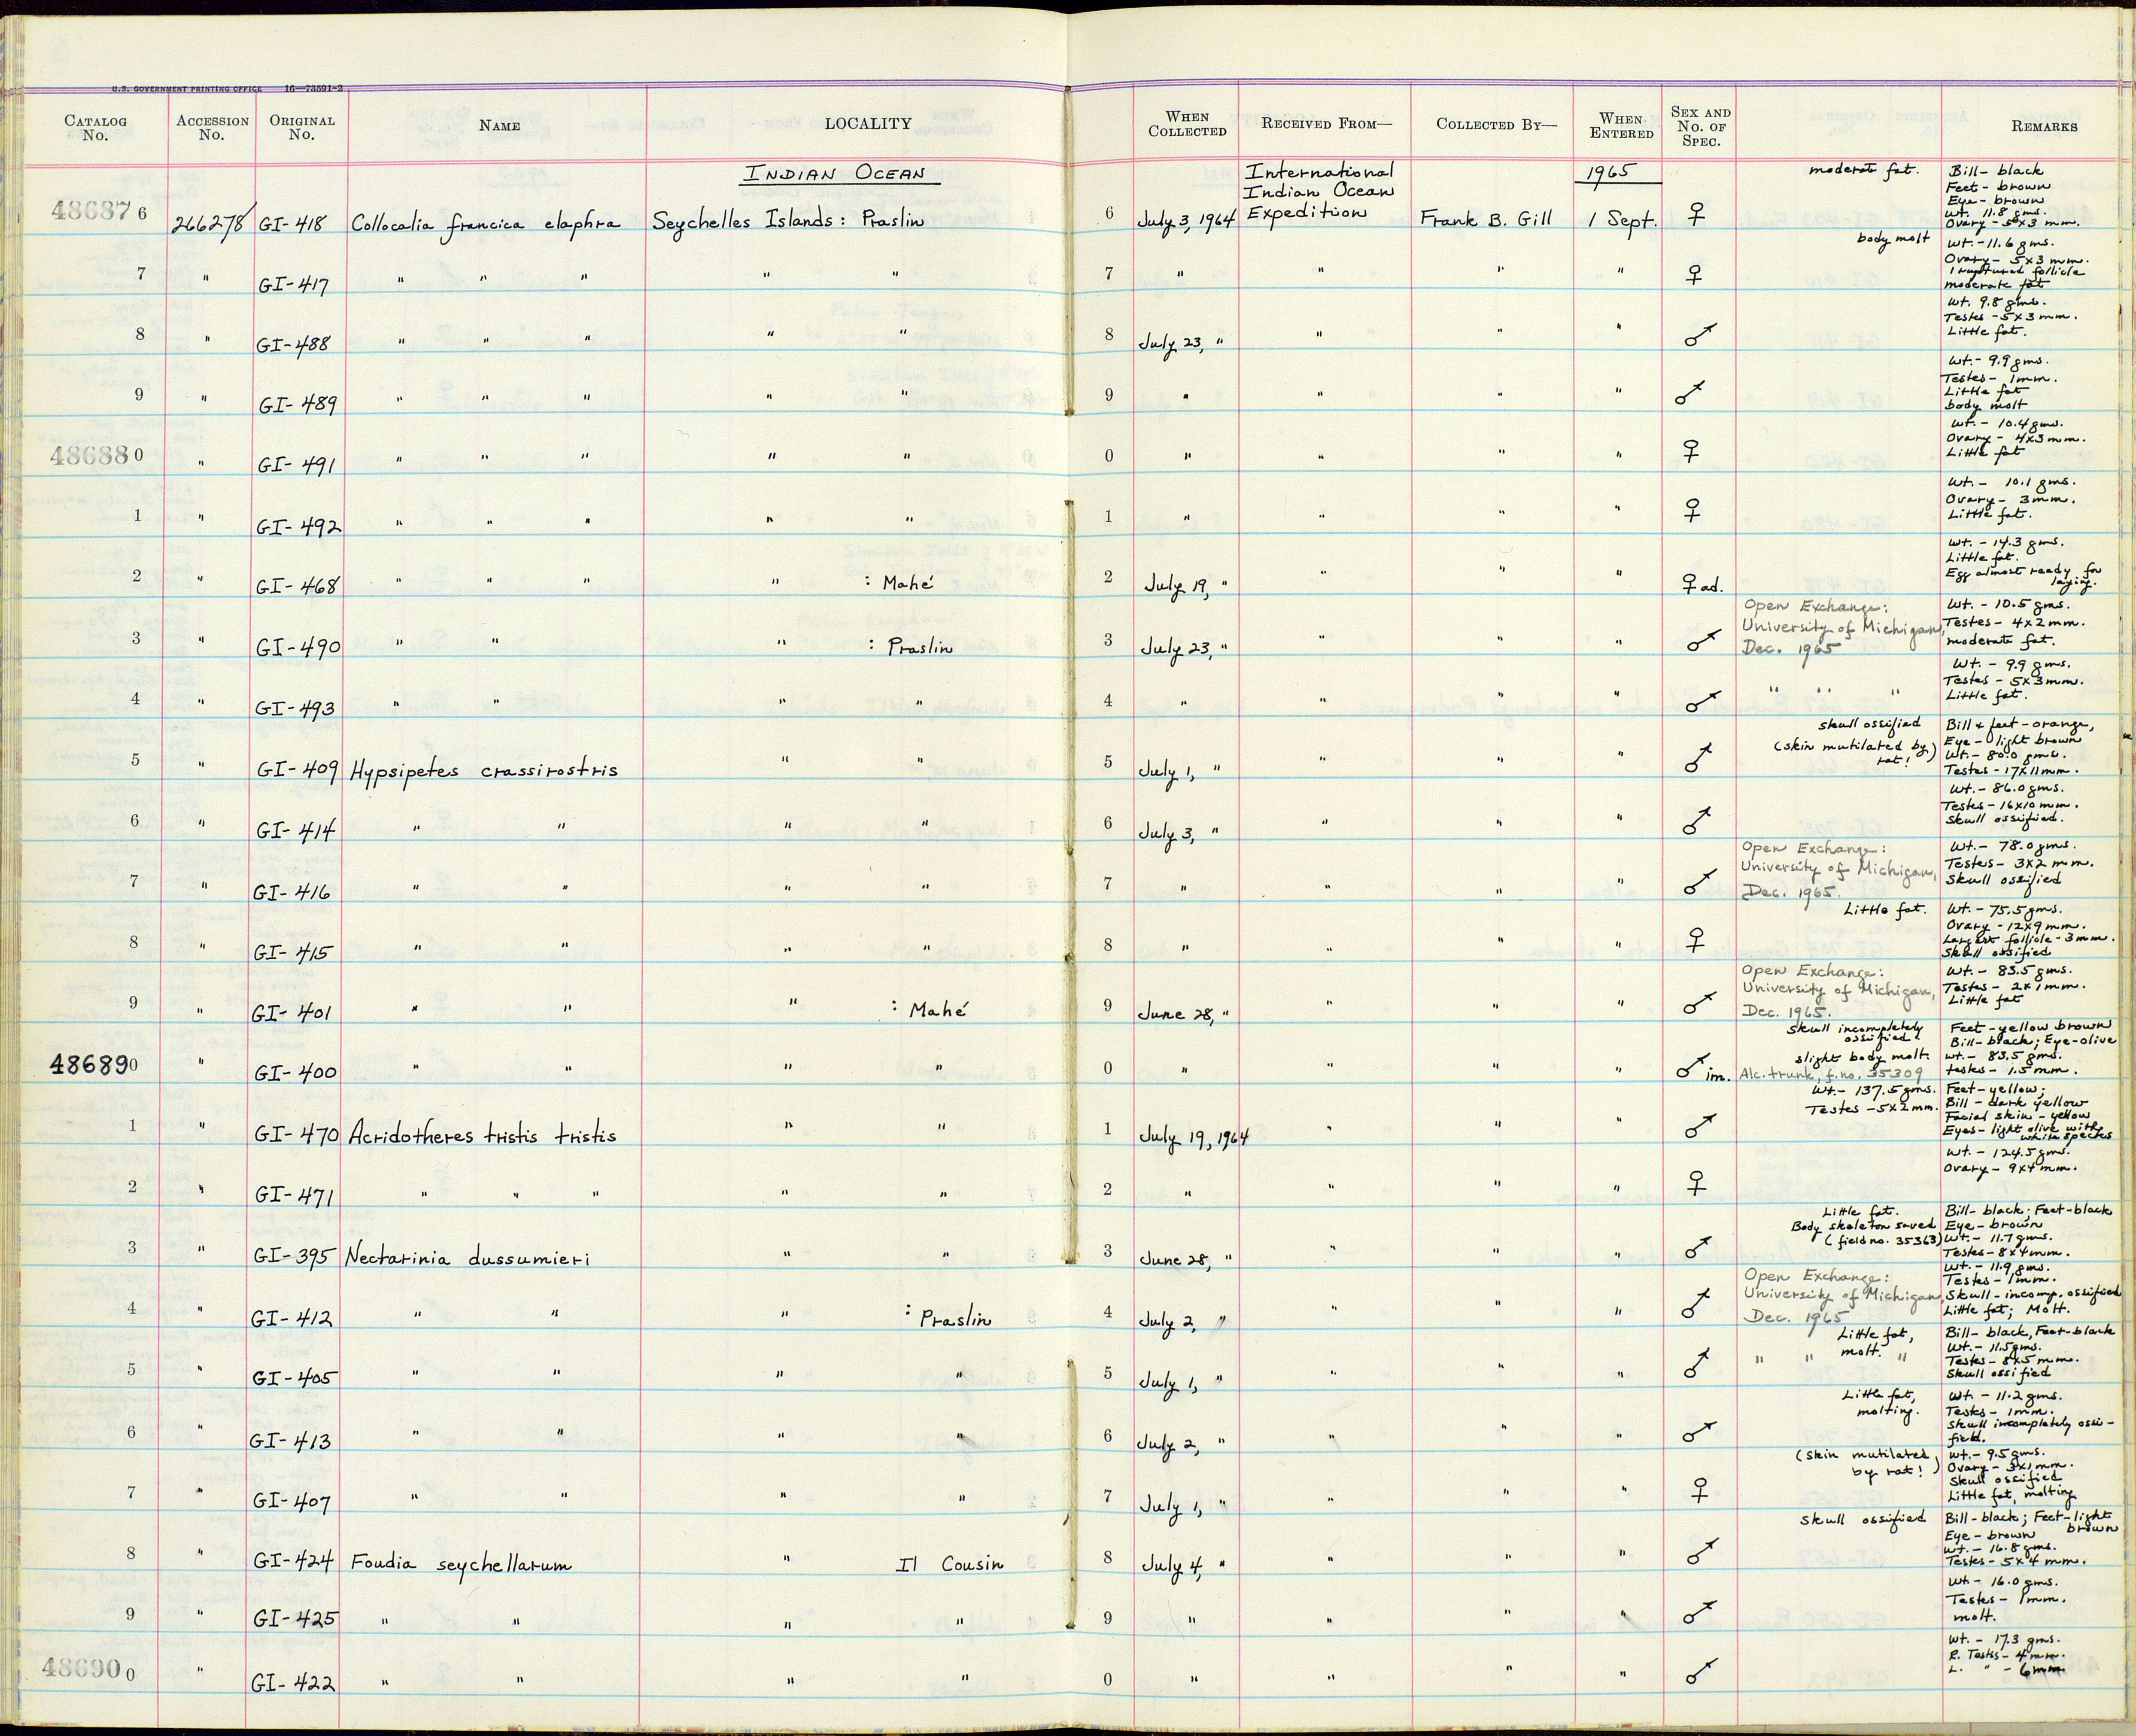 U.S. GOVERNMENT PRINTING OFFICE 16—73591-2
CATALOG No. ACCESSION No. ORIGINAL No. NAME LOCALITY WHEN COLLECTED RECEIVED FROM— COLLECTED BY— WHEN ENTERED SEX AND No. OF SPEC. REMARKS
INDIAN OCEAN International Indian Ocean Expedition 1965
486876 266278 GI-418 Collocalia francica elaphra Seychelles Islands: Praslin 6 July 3, 1964 Frank B. Gill 1 Sept. ♀ moderate fat. Bill- black Feet- brown Eye- brown wt. 11.8 gms. Ovary- 5x3 mm.
7 " GI-417 " " " " " 7 " " " " ♀ body molt Wt.-11.6 gms. Ovary- 5x3 mm. 1 ruptured follicle moderate fat
8 " GI-488 " " " " " 8 July 23, " " " " ♂ Wt. 9.8 gms. Testes -5x3 mm. Little fat.
9 " GI-489 " " " " " 9 " " " " ♂ Wt.- 9.9 gms. Testes- 1mm. Little fat body molt
486880 " GI-491 " " " " " 0 " " " " ♀ Wt.- 10.4 gms. Ovary- 4x3 mm. Little fat
1 " GI-492 " " " " " 1 " " " " ♀ Wt.- 10.1 gms. Ovary- 3mm. Little fat.
2 " GI-468 " " " " : Mahé 2 July 19, " " " " ♀ ad. Wt.- 14.3 gms. Little fat. Egg almost ready for laying.
3 " GI-490 " " " : Praslin 3 July 23, " " " " ♂ Open Exchange: University of Michigan, Dec. 1965 Wt.- 10.5 gms. Testes- 4x2 mm. moderate fat.
4 " GI-493 " " " " 4 " " " " ♂ " " " Wt.- 9.9 gms. Testes- 5x3 mm. Little fat.
5 " GI-409 Hypsipetes crassirostris " " 5 July 1, " " " " ♂ skull ossified (skin mutilated by rat!) Bill & feet-orange, Eye- light brown Wt.- 80.0 gms. Testes-17x11mm.
6 " GI-414 " " " " 6 July 3, " " " " ♂ Wt.- 86.0 gms. Testes-16x10 mm. Skull ossified.
7 " GI-416 " " " " 7 " " " " ♂ Open Exchange: University of Michigan, Dec. 1965. Wt.- 78.0 gms. Testes- 3x2 mm. Skull ossified
8 " GI-415 " " " " 8 " " " " ♀ Little fat. Wt.- 75.5 gms. Ovary-12x9 mm. Largest follicle-3mm. Skull ossified
9 " GI-401 " " " : Mahé 9 June 28, " " " " ♂ Open Exchange: University of Michigan, Dec. 1965. Wt.- 83.5 gms. Testes- 2x1mm. Little fat
486890 " GI-400 " " " " 0 " " " " ♂ im. Skull incompletely ossified slight body molt. Alc. trunk, f. no. 35309 Feet-yellow brown Bill-black; Eye-olive wt.- 83.5 gms. testes- 1.5 mm.
1 " GI-470 Acridotheres tristis tristis " " 1 July 19, 1964 " " " ♂ Wt.- 137.5 gms. Testes -5x2 mm. Feet-yellow; Bill- dark yellow Facial skin-yellow Eyes-light olive with white specks
2 " GI-471 " " " " " 2 " " " " ♀ Wt.- 124.5 gms. Ovary- 9x4 mm.
3 " GI-395 Nectarinia dussumieri " " 3 June 28, " " " " ♂ Little fat. Body skeleton saved (field no. 35363) Bill-black; Feet-black Eye-brown Wt.- 11.7 gms. Testes-8x4mm.
4 " GI-412 " " " : Praslin 4 July 2, " " " " ♂ Open Exchange: University of Michigan, Dec. 1965 Wt.- 11.9 gms. Testes- 1mm. Skull-incomp. ossified Little fat; Molt.
5 " GI-405 " " " " 5 July 1, " " " " ♂ Little fat, molt. " " " Bill-black, Feet-black Wt.- 11.5 gms. Testes-8x5 mm. Skull ossified
6 " GI-413 " " " " 6 July 2, " " " " ♂ Little fat, molting. Wt.- 11.2 gms. Testes- 1mm. Skull incompletely ossi-fied.
7 " GI-407 " " " " 7 July 1, " " " " ♀ (skin mutilated by rat!) Wt.- 9.5 gms. Ovary- 3x1mm. Skull ossified Little fat, molting
8 " GI-424 Foudia seychellarum " Il Cousin 8 July 4, " " " " ♂ Skull ossified Bill-black; Feet-light brown Eye-brown Wt.- 16.8 gms. Testes-5x4 mm.
9 " GI-425 " " " " 9 " " " " ♂ Wt- 16.0 gms. Testes- 1mm. molt.
486900 " GI-422 " " " " 0 " " " " ♂ Wt.- 17.3 gms. R. Testes- 4mm. L. " - 6mm